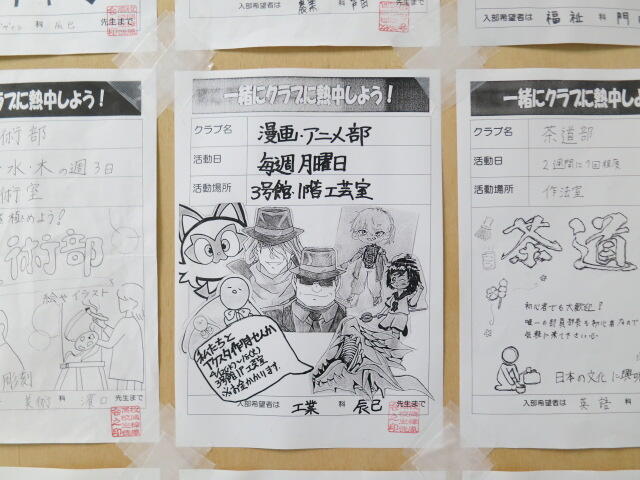 科 辰巳 先生まで
入部希望者は 農業 科
先生まで
入部希望者は 福祉 門
ラブに熱中しよう!
術部
・水・木の週3日
術室
極めよう!
術部
絵やイラスト
彫刻
美術 濱口 先生まで
一緒にクラブに熱中しよう!
クラブ名 漫画・アニメ部
活動日 毎週月曜日
活動場所 3号館・1階工芸室
私たちと
3号館1F工芸室
入部希望者は 工業 科 辰巳 先生まで
一緒にクラブに熱中しよう!
クラブ名 茶道部
活動日 2週間に1回程度
活動場所 作法室
茶道
初心者でも大歓迎!
唯一の部員部長も初心者なので
気軽に来て下さい
日本の文化に興味
入部希望者は 英語 科